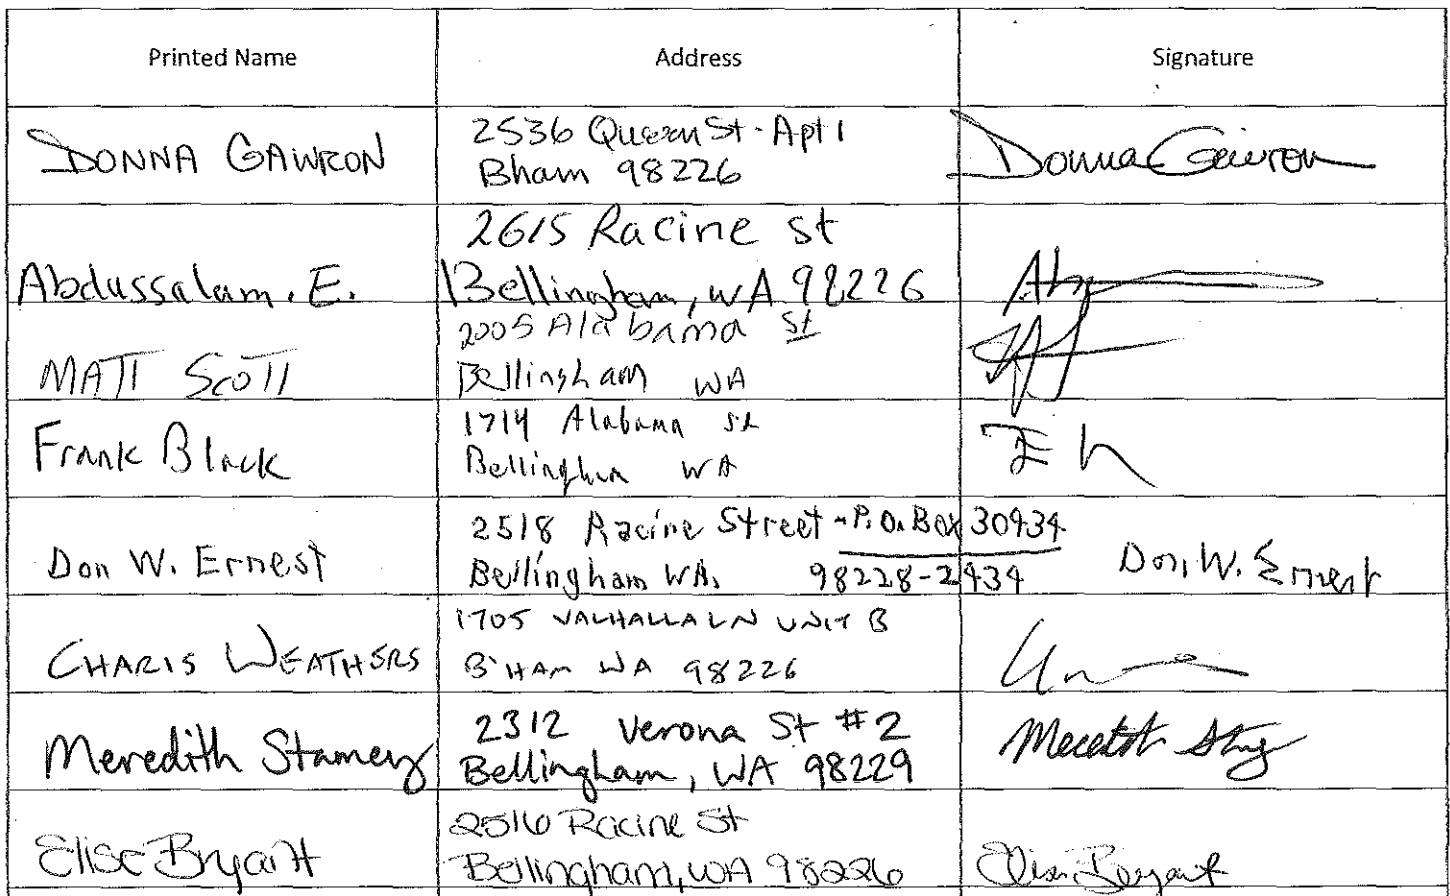 Printed Name Address Signature
DONNA GAWRON
2536 Queen St - Apt 1
Bham 98226
Donna Gawron
Abdussalam. E.
2615 Racine st
Bellingham, WA 98226
MATT SCOTT
2005 Alabama st
Bellingham WA
Frank Black
1714 Alabama st
Bellingham WA
Don W. Ernest
2518 Racine Street - P.O. Box 30934
Bellingham WA. 98228-2934
Don, W. Ernest
CHARIS WEATHERS
1705 VALHALLA LN UNIT B
B'HAM WA 98226
Meredith Stamey
2312 Verona St #2
Bellingham, WA 98229
Elise Bryant
2516 Racine St
Bellingham, WA 98226
Elise Bryant